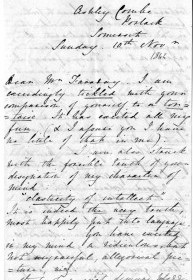 Ashley Combe
Porlock
Somerset
Sunday 10th Novr
1844
Dear Mr Faraday. I am
exceedingly tickled with your
comparison of yourself to a tor-
toise. It has excited all my
fun (& I assure you I have
no little of that in me).
I am struck
with the forcible truth of your
designation of my character of
mind:
"elasticity of intellect".
It is indeed the very truth,
most happily put into language.
You have excited
in my mind a ridiculous, but
not ungraceful, allegorical pic-
ture, viz: